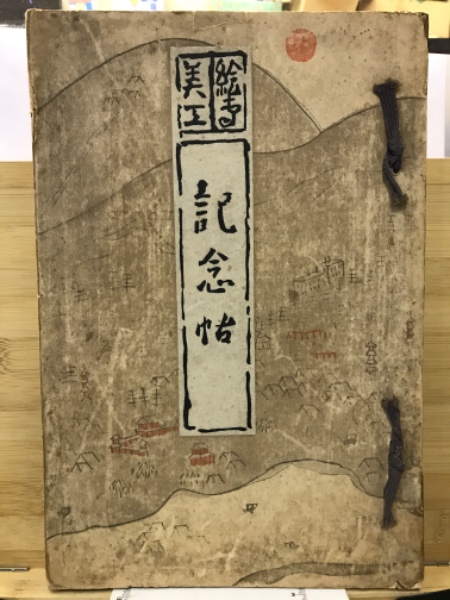 絵専
美工
記念帖